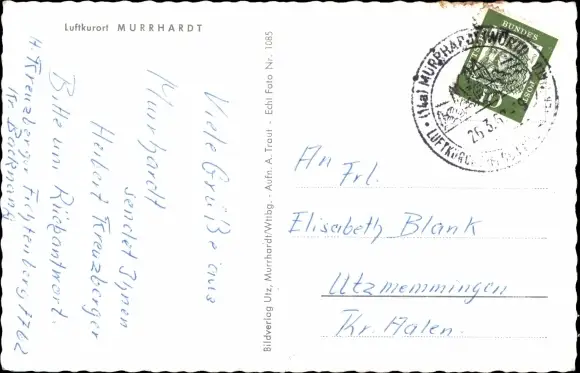 Luftkurort MURRHARDT
Viele Grüße aus
Murrhardt
sendet Ihnen
Herbert Kreuzberger
Bitte um Rückantwort.
H. Kreuzberger Fichtenberg 1762
Kr Backnang
Bildverlag Utz, Murrhardt/Wttbg. - Aufn. A. Traut - Echt Foto Nr. 1085
BUNDES
10
(14a) MURRHARDT
26.3.6
LUFTKURORT
An
Frl.
Elisabeth Blank
Utzmemmingen
Kr. Aalen.